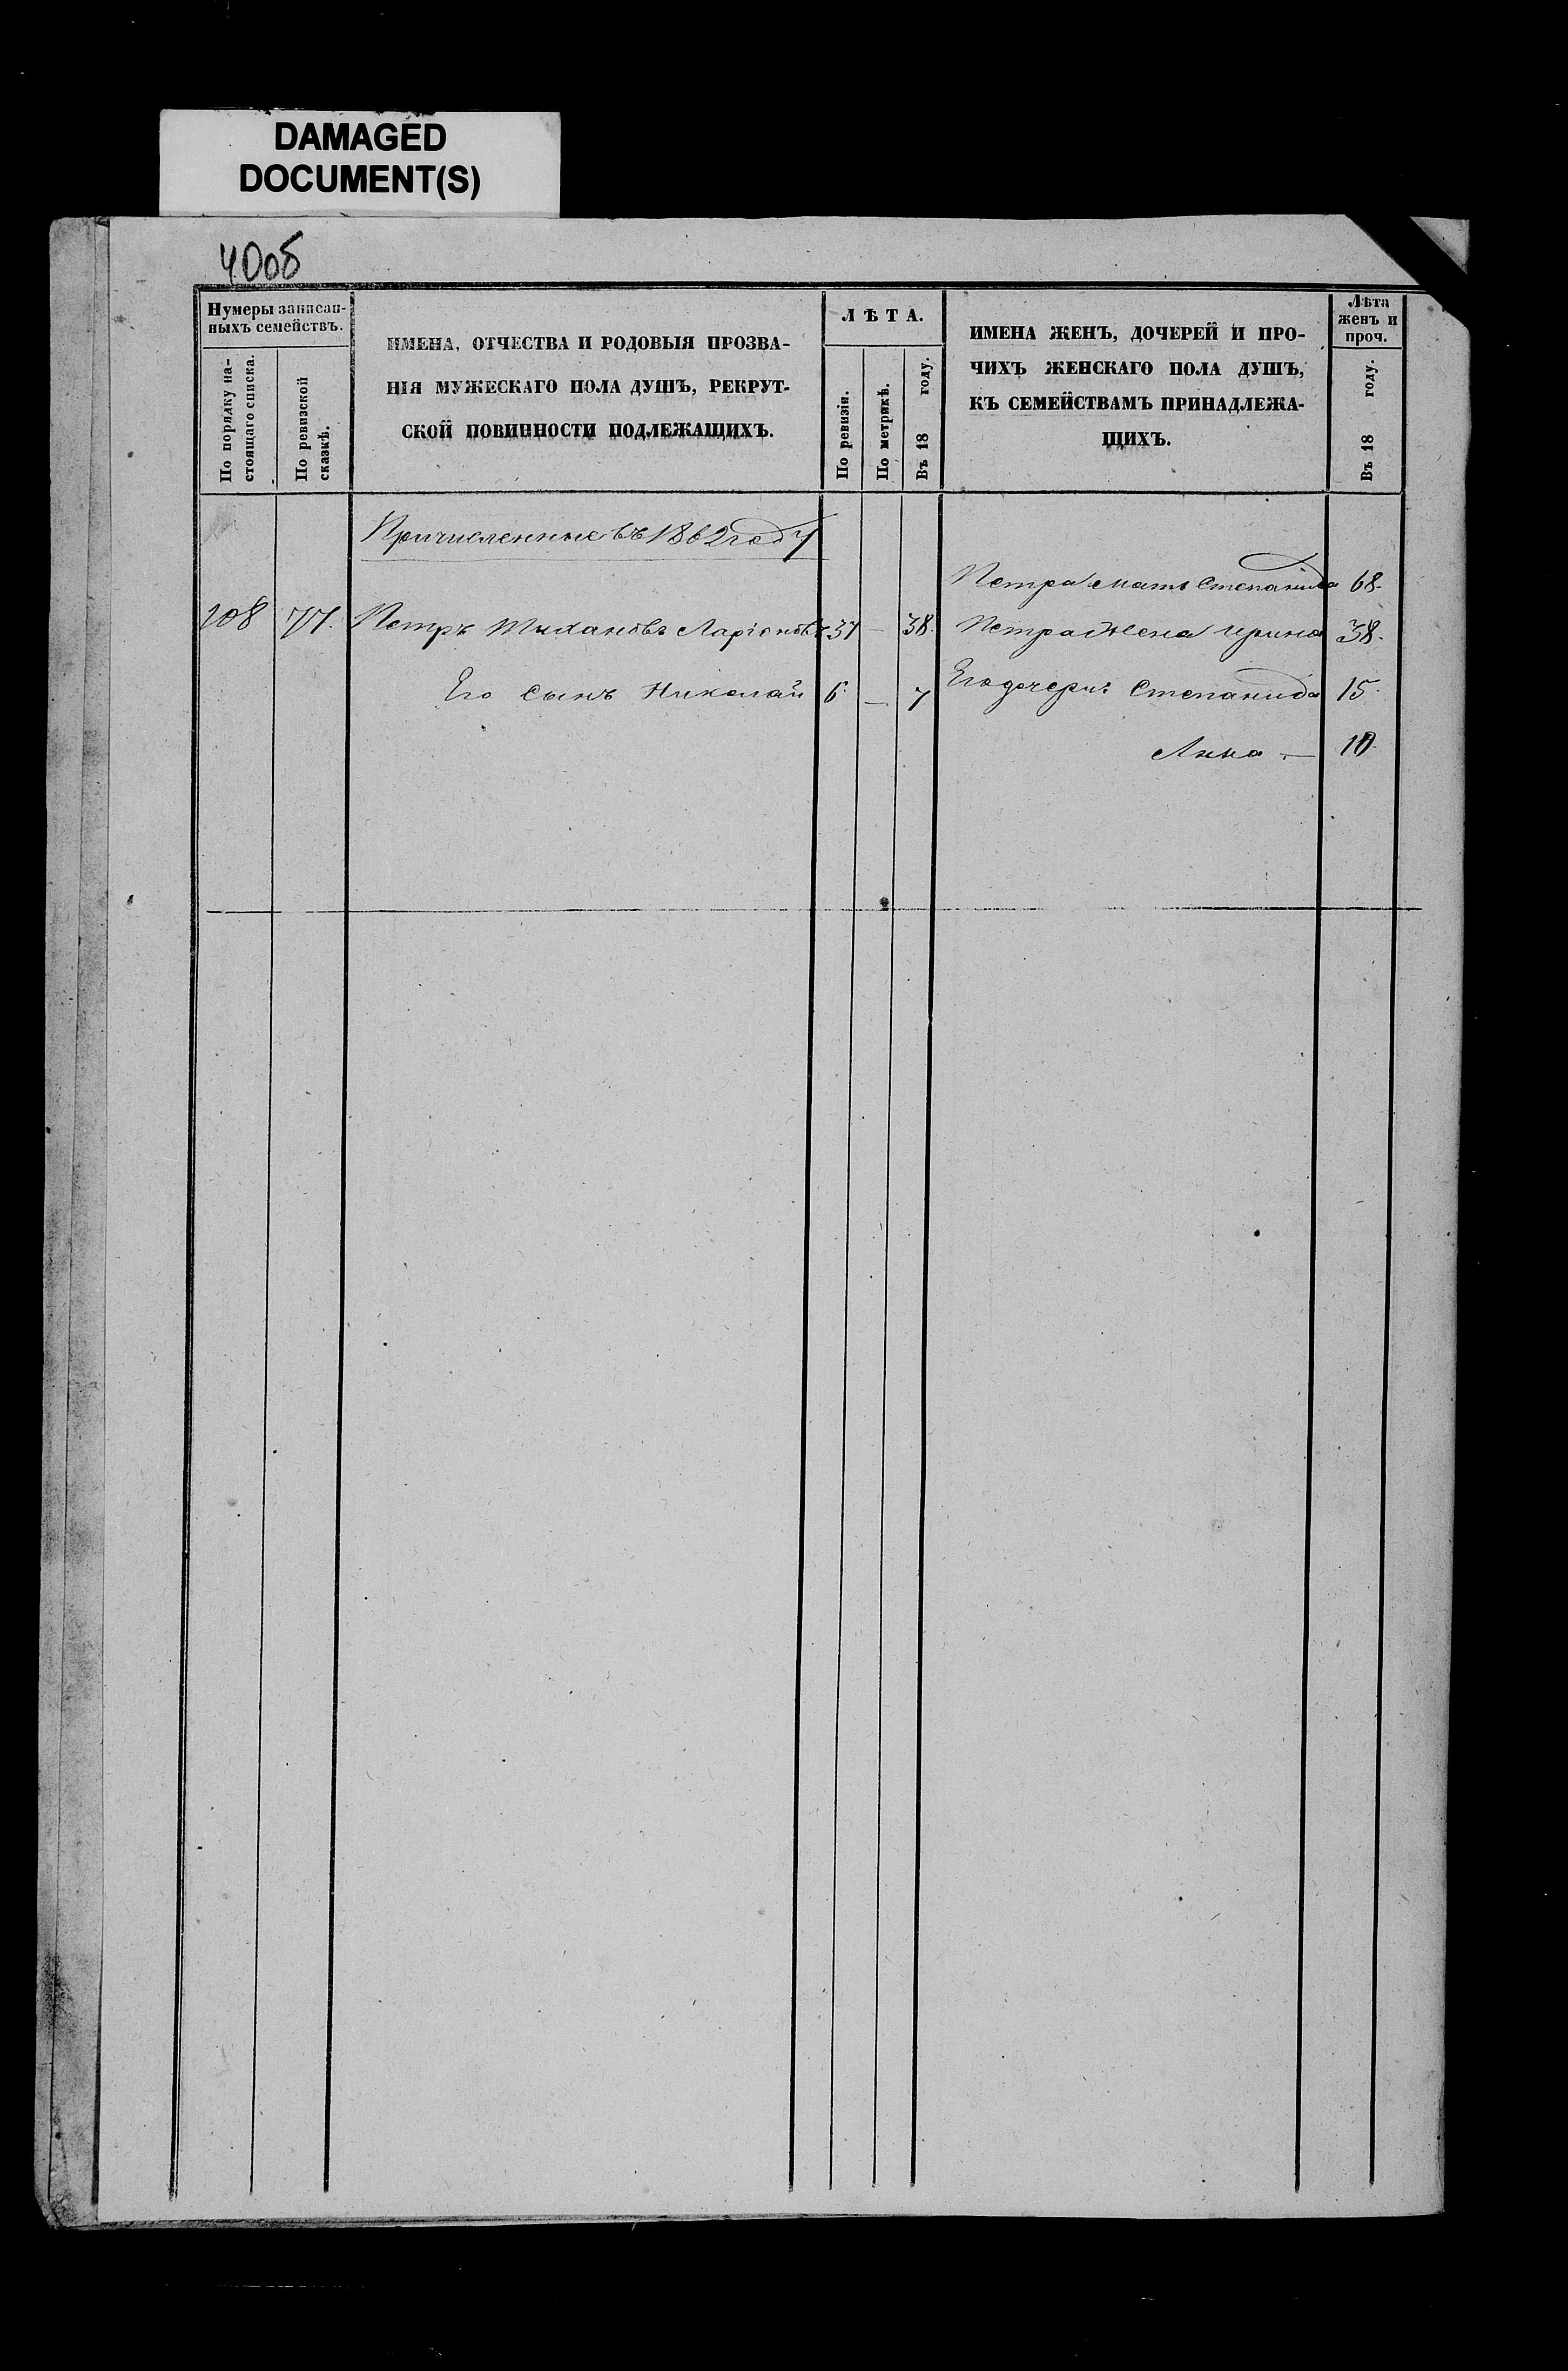 DAMAGED
DOCUMENT(S)
400б
Нумеры записан-
ныхъ семействъ.
По порядку на-
стоящаго списка.
По ревизской
сказкѣ.
ИМЕНА, ОТЧЕСТВА И РОДОВЫЯ ПРОЗВА-
НІЯ МУЖЕСКАГО ПОЛА ДУШЪ, РЕКРУТ-
СКОЙ ПОВИННОСТИ ПОДЛЕЖАЩИХЪ.
ЛѢТА.
По ревизіи.
По метрикѣ.
Въ 18 году.
ИМЕНА ЖЕНЪ, ДОЧЕРЕЙ И ПРО-
ЧИХЪ ЖЕНСКАГО ПОЛА ДУШЪ,
КЪ СЕМЕЙСТВАМЪ ПРИНАДЛЕЖА-
ЩИХЪ.
Лѣта
женъ и
проч.
Въ 18 году.
Причисленные въ 1862 году
Петра мать Степанида 68.
108 77. Петръ Ларіоновъ 37 — 38. Петра Жена Ирина 38.
Его Сынъ Николай 6. — 7 Его дочери: Степанида 15.
Анна — 10.